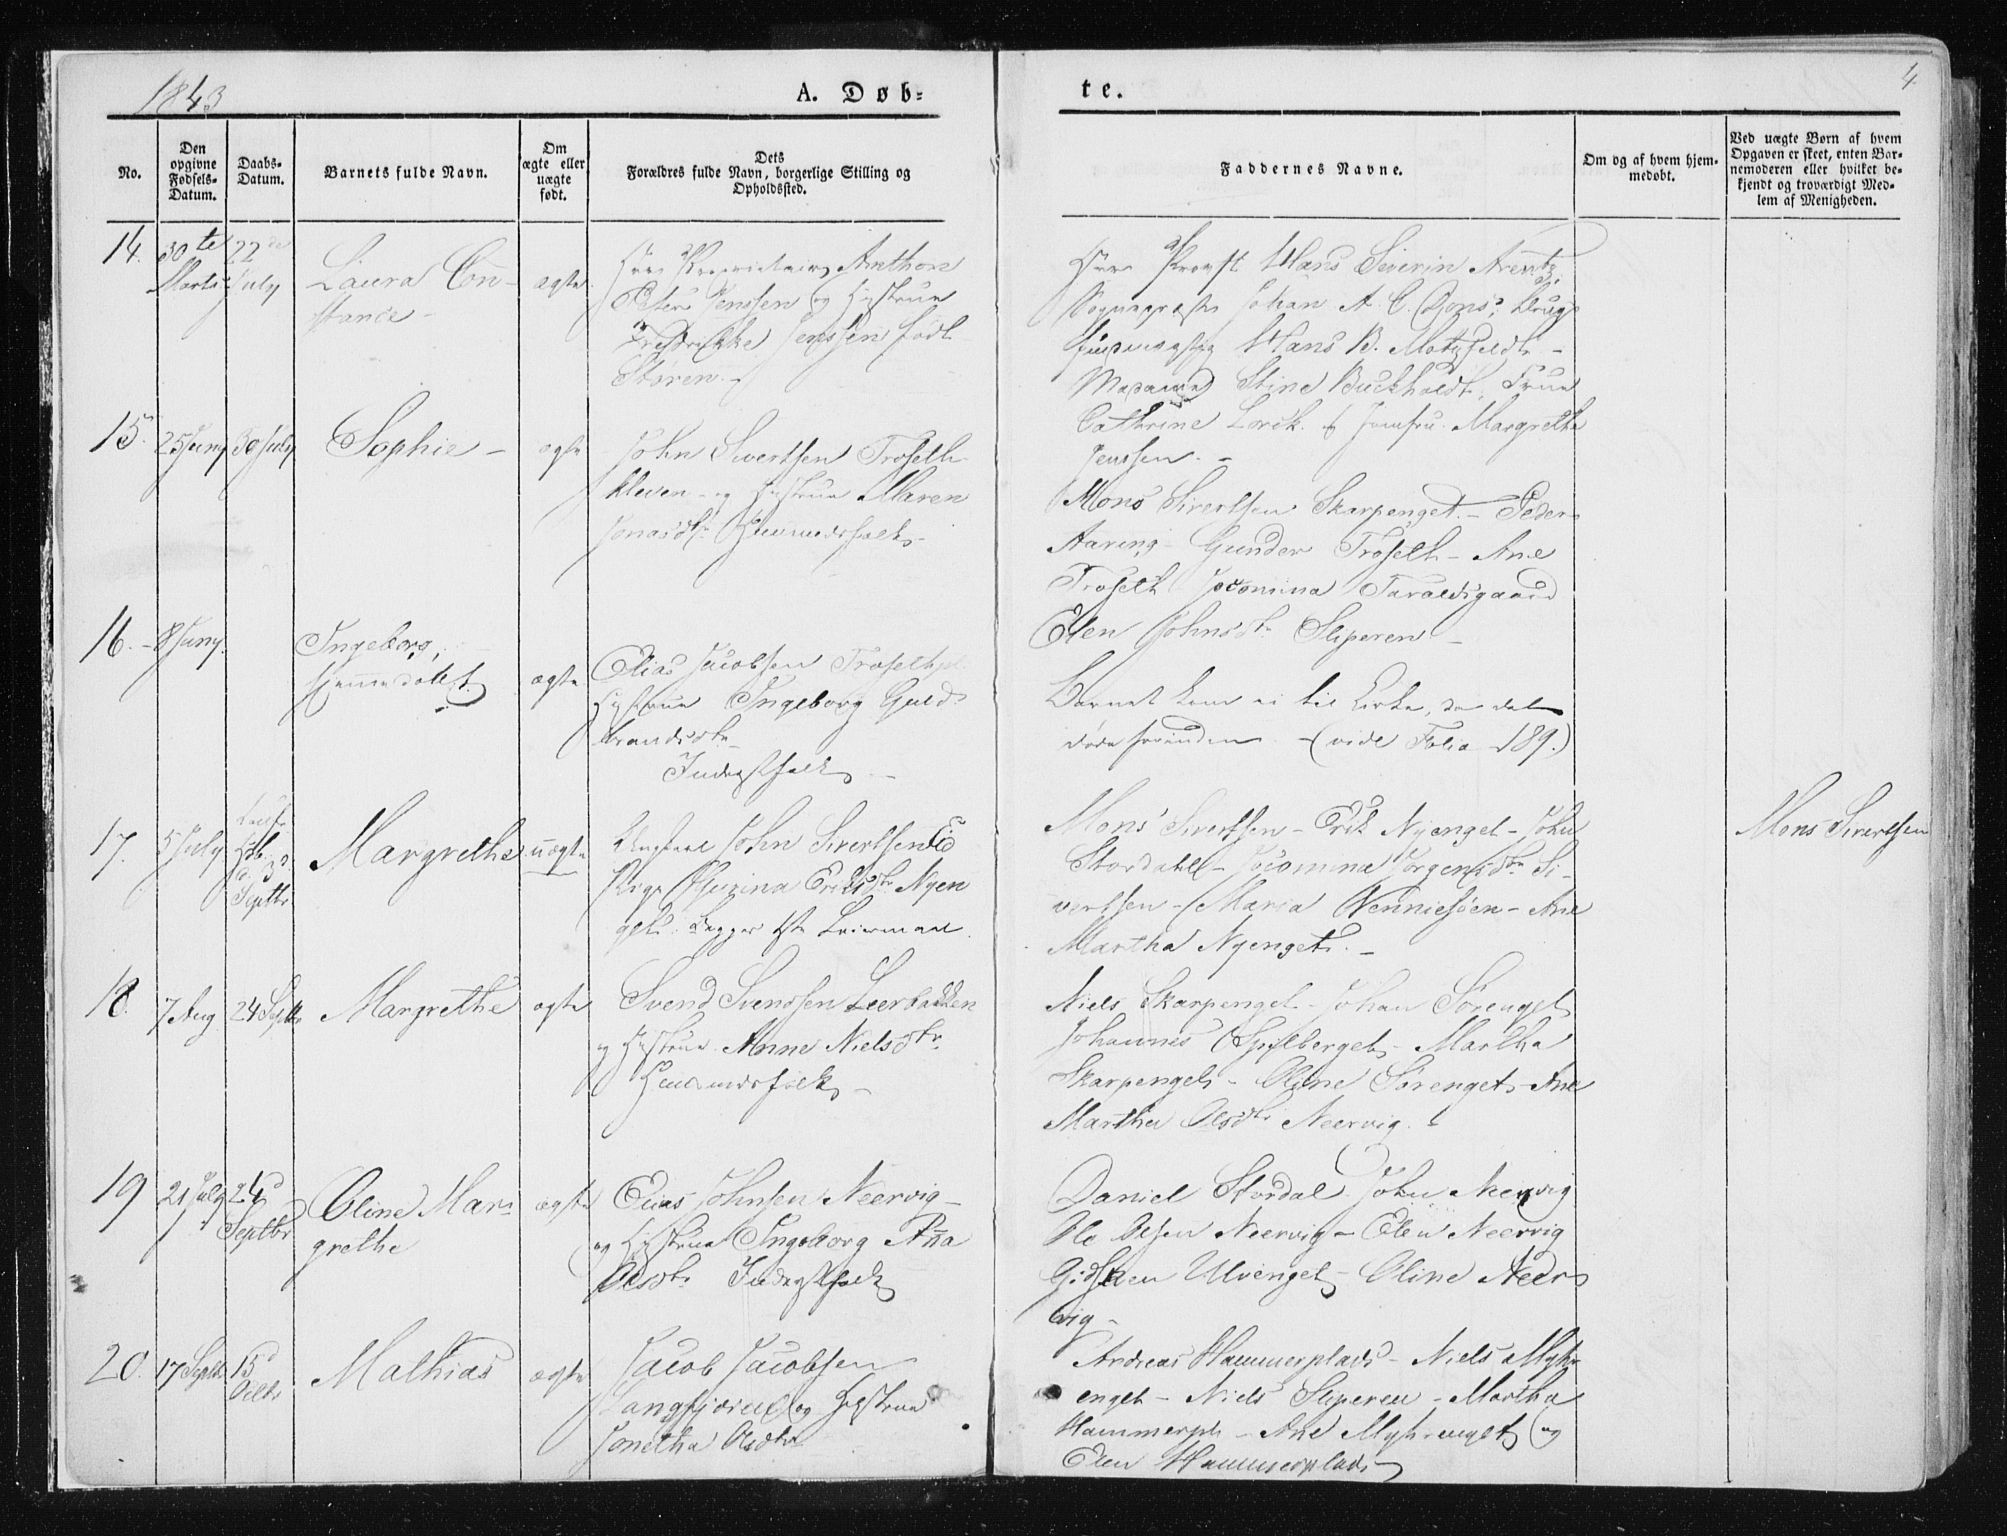 1843
A. Døb-
te.
4.
No.
Den opgivne Fødsels-Datum.
Daabs-Datum.
Barnets fulde Navn.
Om ægte eller uægte født.
Dets Forældres fulde Navn, borgerlige Stilling og Opholdssted.
Faddernes Navne.
Om og af hvem hjem-medøbt.
Ved uægte Børn af hvem Opgaven er skeet, enten Bar-nemoderen eller hvilket be-kjendt og troværdigt Med-lem af Menigheden.
14.
30te Marts
22de July
Laura Con-
stance -
ægte
Herr Proprietair Anthon
Peter Jenssen og Hustrue
Fredrikke Jenssen født
Støren.
Herr Provst Hans Severin Arentz,
Sognepræst Johan A. C. Dons,
Hans B. Motzfeldt -
Madame Stine Buckholdt, Frue
Cathrine Lorck. & Jomfru Margrethe
Jenssen. -
15.
25 Juny
30 July
Sophie -
ægte
John Sivertsen Troseth-
kleven - og Hustrue Maren
Jonasdtr Huusmandsfolk -
Mons Sivertsen Skarpenget - Peder
Aaring - Gunder Troseth - Ane
Troseth Jocomina Taraldsgaard
Elen Johnsdtr Sliperen -
16. -
8 Juny.
Ingeborg,
hjemmedøbt
ægte
Elias Jacobsen Troseth
Hustrue Ingeborg Guld-
brandsdtr
Inderstfolk -
Barnet kom ei til Kirke, da det
døde forinden - (vide Folio 189.)
17.
5 July
3d Septbr
Margrethe
uægte
Ungkarl John Sivertsen Eid
Pige Eriksdtr Nyen
get. Begges 1ste Leiermaal.
Mons Sivertsen - Erik Nyenget - John
Stordahl - Jocomina Jørgensdtr Si-
vertsen - Maria Wenniesøen - Ane
Martha Nyenget. -
Mons Sivertsen
18.
7 Aug
24 Septbr
Margrethe
ægte
Svend Svendsen Leerbakken
og Hustrue Anne Nielsdtr
Huusmandsfolk -
Niels Skarpenget - Johan Sørenget
Johannes Spilberget - Martha
Skarpenget - Oline Sørenget - Ane
Martha Olsdtr Neervig.
19
21 July
24d Septbr
Oline Mar-
grethe
ægte
Elias Johnsen Neervig -
og Hustrue Ingeborg Anna
Olsdtr Inderstfolk
Daniel Stordal John Neervig
Ole Olsen Neervig - Elen Neervig
Ulvenget - Oline Neer
vig -
20.
17 Septbr
15d Octbr
Mathias
ægte
Jacob Jacobsen
Langfjæren og Hustrue
Jonetha Olsdtr
Andreas Hammerplads - Niels Myhr
enget - Niels Sliperen - Martha
Hammerpl - Ane Myhrenget og
Elen Hammerplads